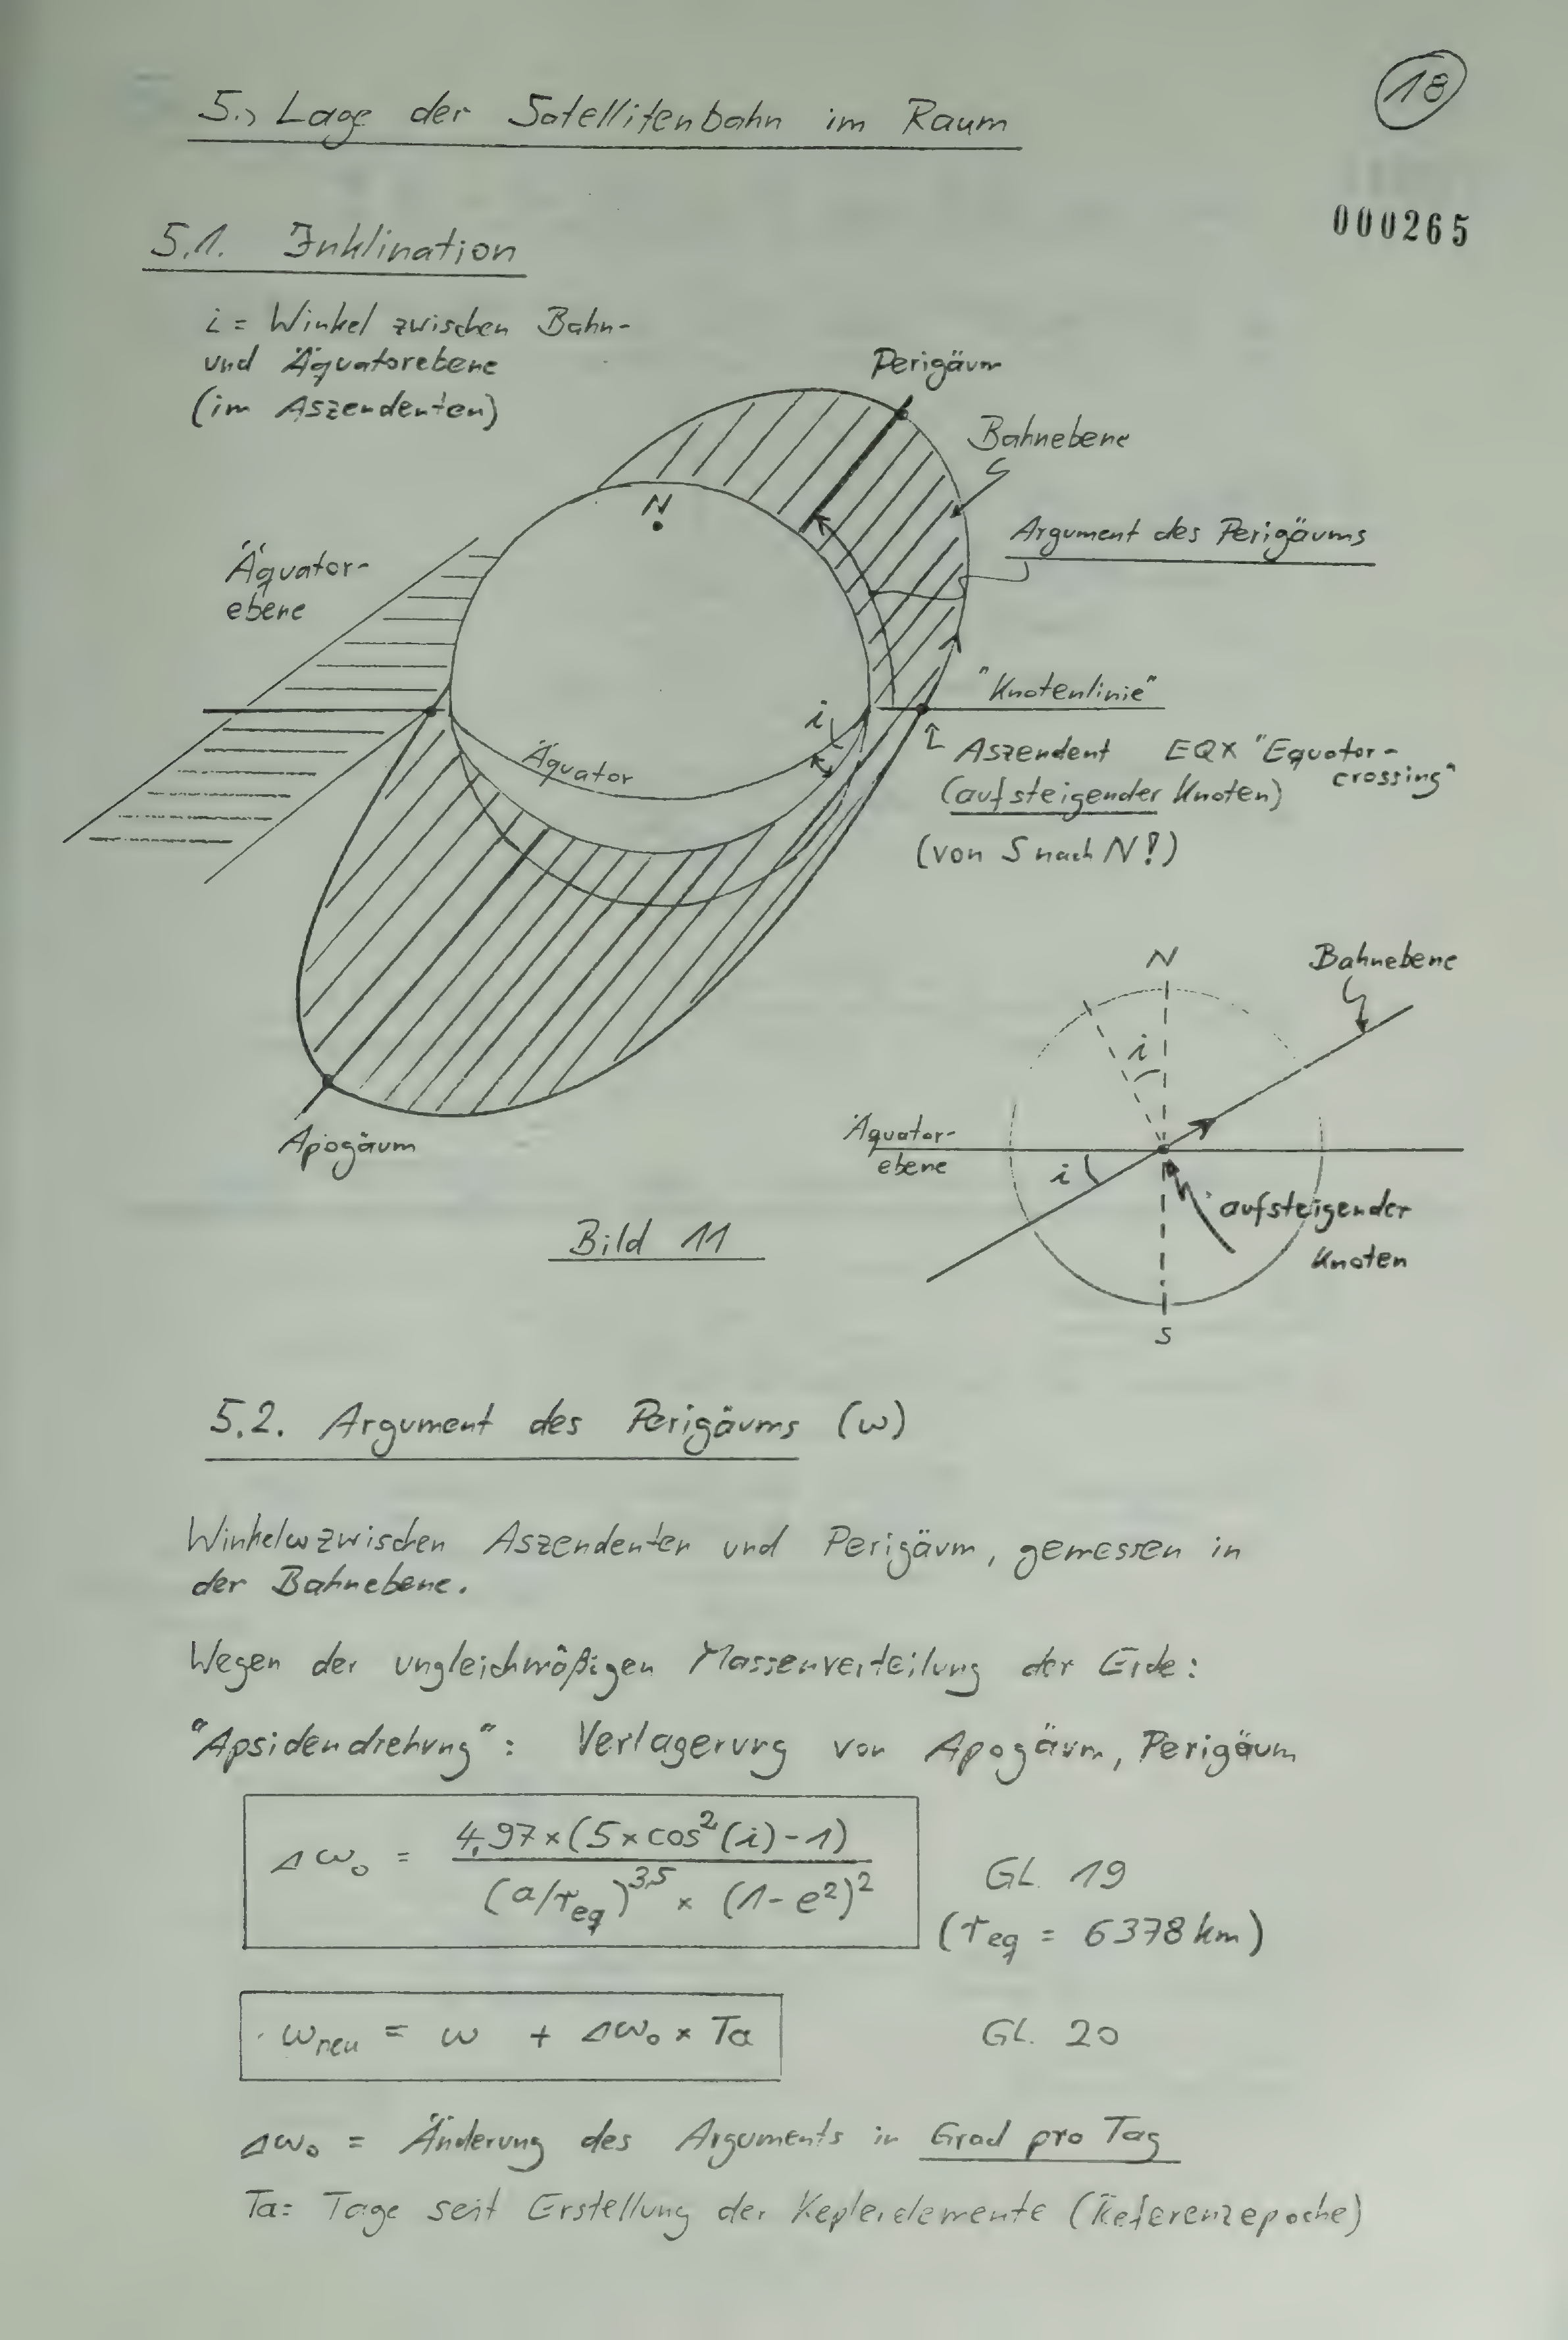 18
5., Lage der Satellitenbahn im Raum
000265
5.1. Inklination
i = Winkel zwischen Bahn-
und Äquatorebene
(im Aszendenten)
Perigäum
Bahnebene
N
Argument des Perigäums
Äquator-
ebene
"Knotenlinie"
i
Äquator
Aszendent EQX "Equator-
crossing"
(aufsteigender Knoten)
(von S nach N!)
N
Bahnebene
i
Äquator-
ebene
i
Apogäum
aufsteigender
Knoten
Bild 11
S
5.2. Argument des Perigäums (ω)
Winkel ω zwischen Aszendenten und Perigäum, gemessen in
der Bahnebene.
Wegen der ungleichmäßigen Massenverteilung der Erde:
"Apsidendrehung": Verlagerung von Apogäum, Perigäum
Δω₀ = 4,97 × (5 × cos²(i) - 1) / (a/r_eq)^3,5 × (1 - e²)²
GL. 19
(r_eq = 6378 km)
ω_neu = ω + Δω₀ × Ta
GL. 20
Δω₀ = Änderung des Arguments in Grad pro Tag
Ta = Tage seit Erstellung der Keplerelemente (Referenzepoche)